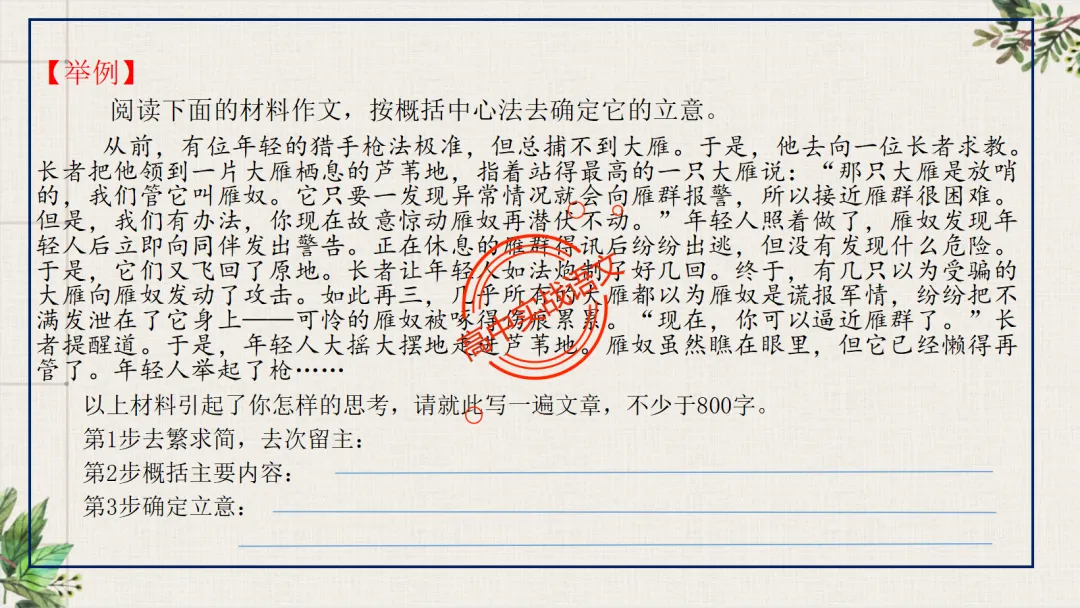 【举例】
阅读下面的材料作文，按概括中心法去确定它的立意。
从前，有位年轻的猎手枪法极准，但总捕不到大雁。于是，他去向一位长者求教。
长者把他领到一片大雁栖息的芦苇地，指着站得最高的一只大雁说：“那只大雁是放哨
的，我们管它叫雁奴。它只要一发现异常情况就会向雁群报警，所以接近雁群很困难。
但是，我们有办法，你现在故意惊动雁奴再潜伏不动。”年轻人照着做了，雁奴发现年
轻人后立即向同伴发出警告。正在休息的雁群得讯后纷纷出逃，但没有发现什么危险。
于是，它们又飞回了原地。长者让年轻人如法炮制了好几回。终于，有几只以为受骗的
大雁向雁奴发动了攻击。如此再三，几乎所有的大雁都以为雁奴是谎报军情，纷纷把不
满发泄在了它身上——可怜的雁奴被啄得伤痕累累。“现在，你可以逼近雁群了。”长
者提醒道。于是，年轻人大摇大摆地走进芦苇地。雁奴虽然瞧在眼里，但它已经懒得再
管了。年轻人举起了枪……
以上材料引起了你怎样的思考，请就此写一遍文章，不少于800字。
第1步去繁求简，去次留主：
第2步概括主要内容：
第3步确定立意：
高中实战语文